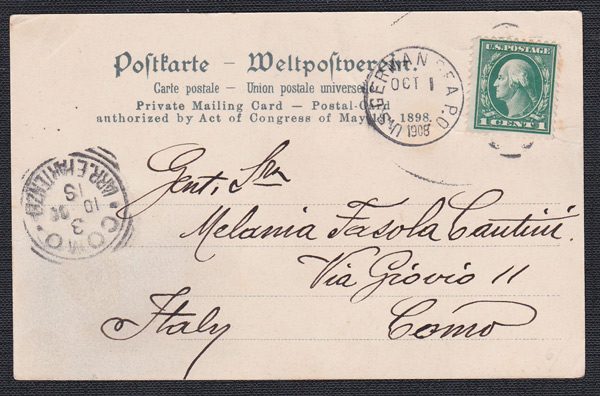 Postkarte – Weltpostverein.
Carte postale – Union postale universelle
Private Mailing Card – Postal-Card
authorized by Act of Congress of May 19, 1898.
U.S. GERMAN SEA P.O.
OCT 1
1908
U.S. POSTAGE
1 CENT 1
COMO
(ARR. E PARTENZE)
3
10
1S
Gent. Sra
Melania Fasola Cantini.
Via Giovio 11
Italy Como